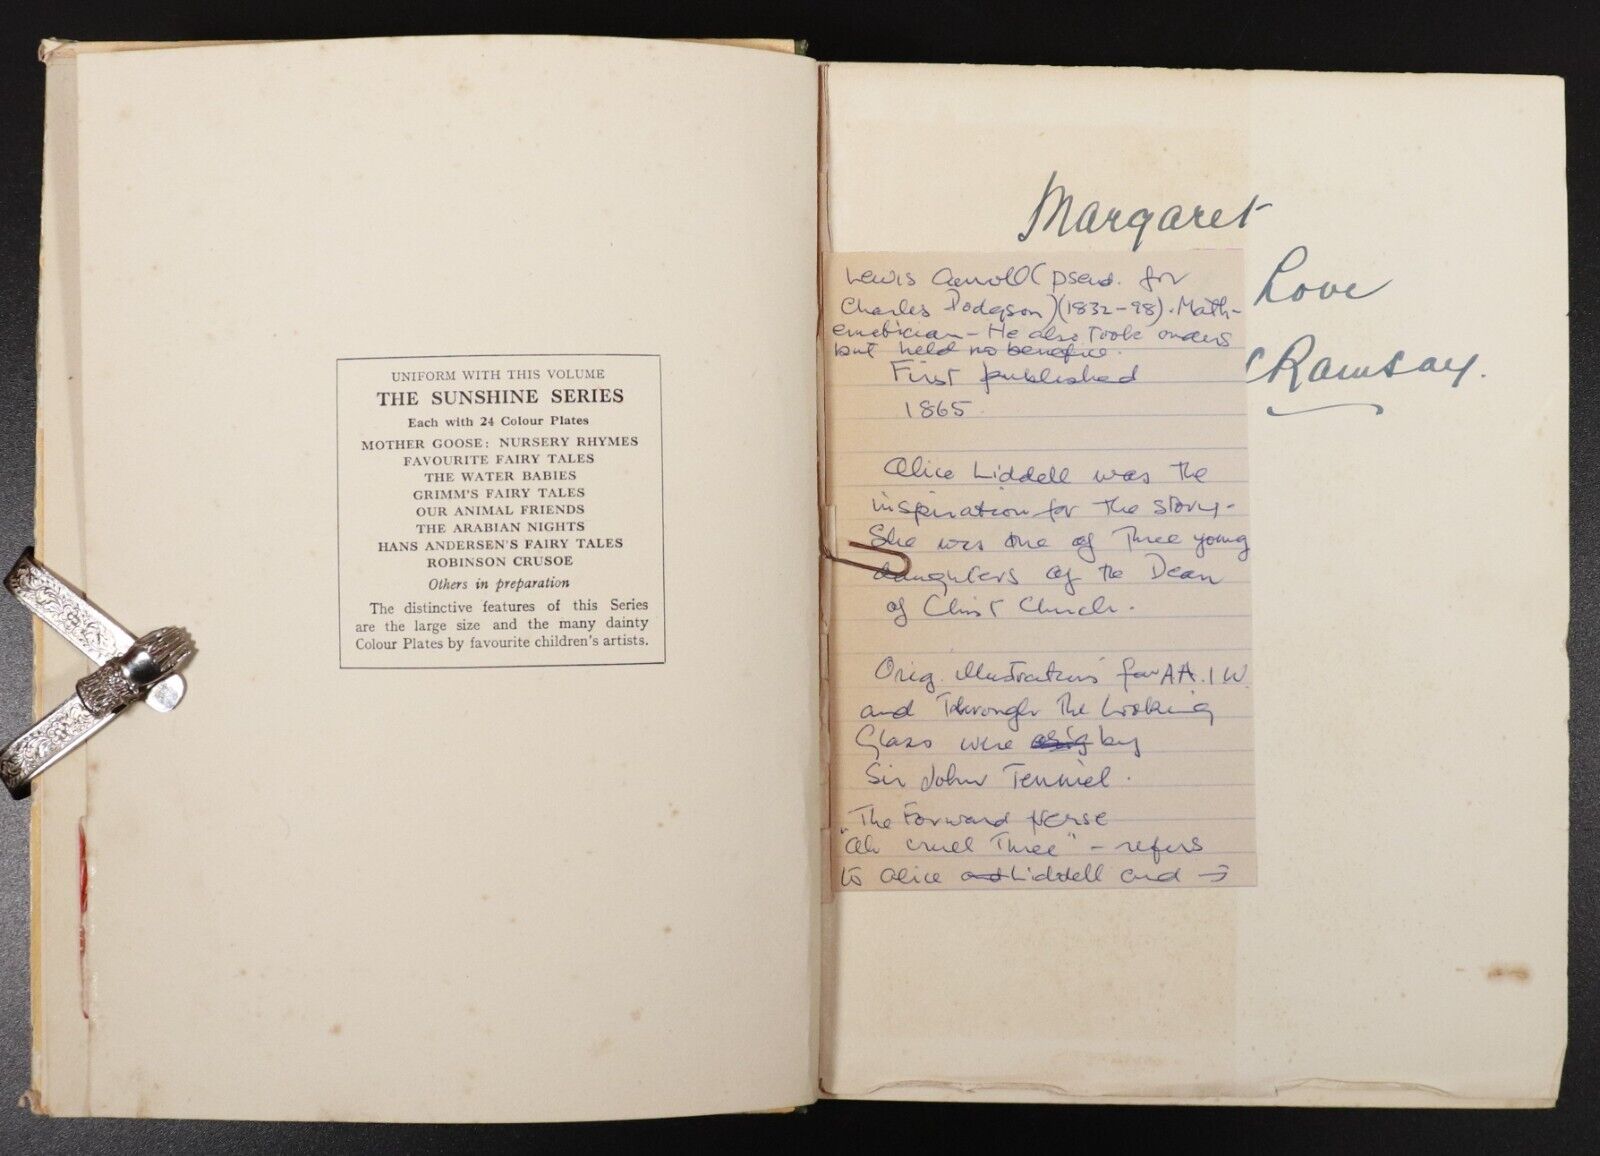 UNIFORM WITH THIS VOLUME
THE SUNSHINE SERIES
Each with 24 Colour Plates
MOTHER GOOSE: NURSERY RHYMES
FAVOURITE FAIRY TALES
THE WATER BABIES
GRIMM'S FAIRY TALES
OUR ANIMAL FRIENDS
THE ARABIAN NIGHTS
HANS ANDERSEN'S FAIRY TALES
ROBINSON CRUSOE
Others in preparation
The distinctive features of this Series
are the large size and the many dainty
Colour Plates by favourite children's artists.
Margaret
Love
Ramsay.
Lewis Carroll (pseud. for
Charles Dodgson) (1832-98). Math-
ematician - He also took orders
but held no benefice.
First published
1865.
Alice Liddell was the
inspiration for the story -
She was one of three young
daughters of the Dean
of Christ Church.
Orig. illustrations for AA.I W.
and Through the Looking
Glass were by
Sir John Tenniel.
"The Forward Verse
"Ah cruel Three" - refers
to Alice Liddell and →